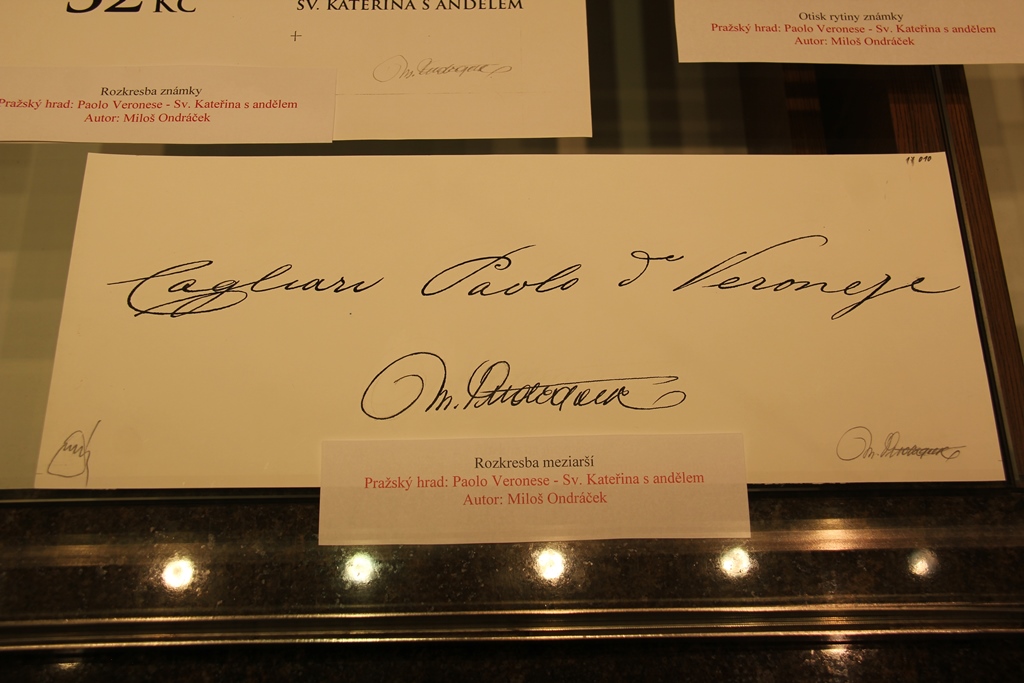 32 Kč
SV. KATEŘINA S ANDĚLEM
M. Ondráček
Rozkresba známky
Pražský hrad: Paolo Veronese - Sv. Kateřina s andělem
Autor: Miloš Ondráček
Otisk rytiny známky
Pražský hrad: Paolo Veronese - Sv. Kateřina s andělem
Autor: Miloš Ondráček
Cagliari Paolo de Veronese
M. Ondráček
M. Ondráček
Rozkresba meziarší
Pražský hrad: Paolo Veronese - Sv. Kateřina s andělem
Autor: Miloš Ondráček